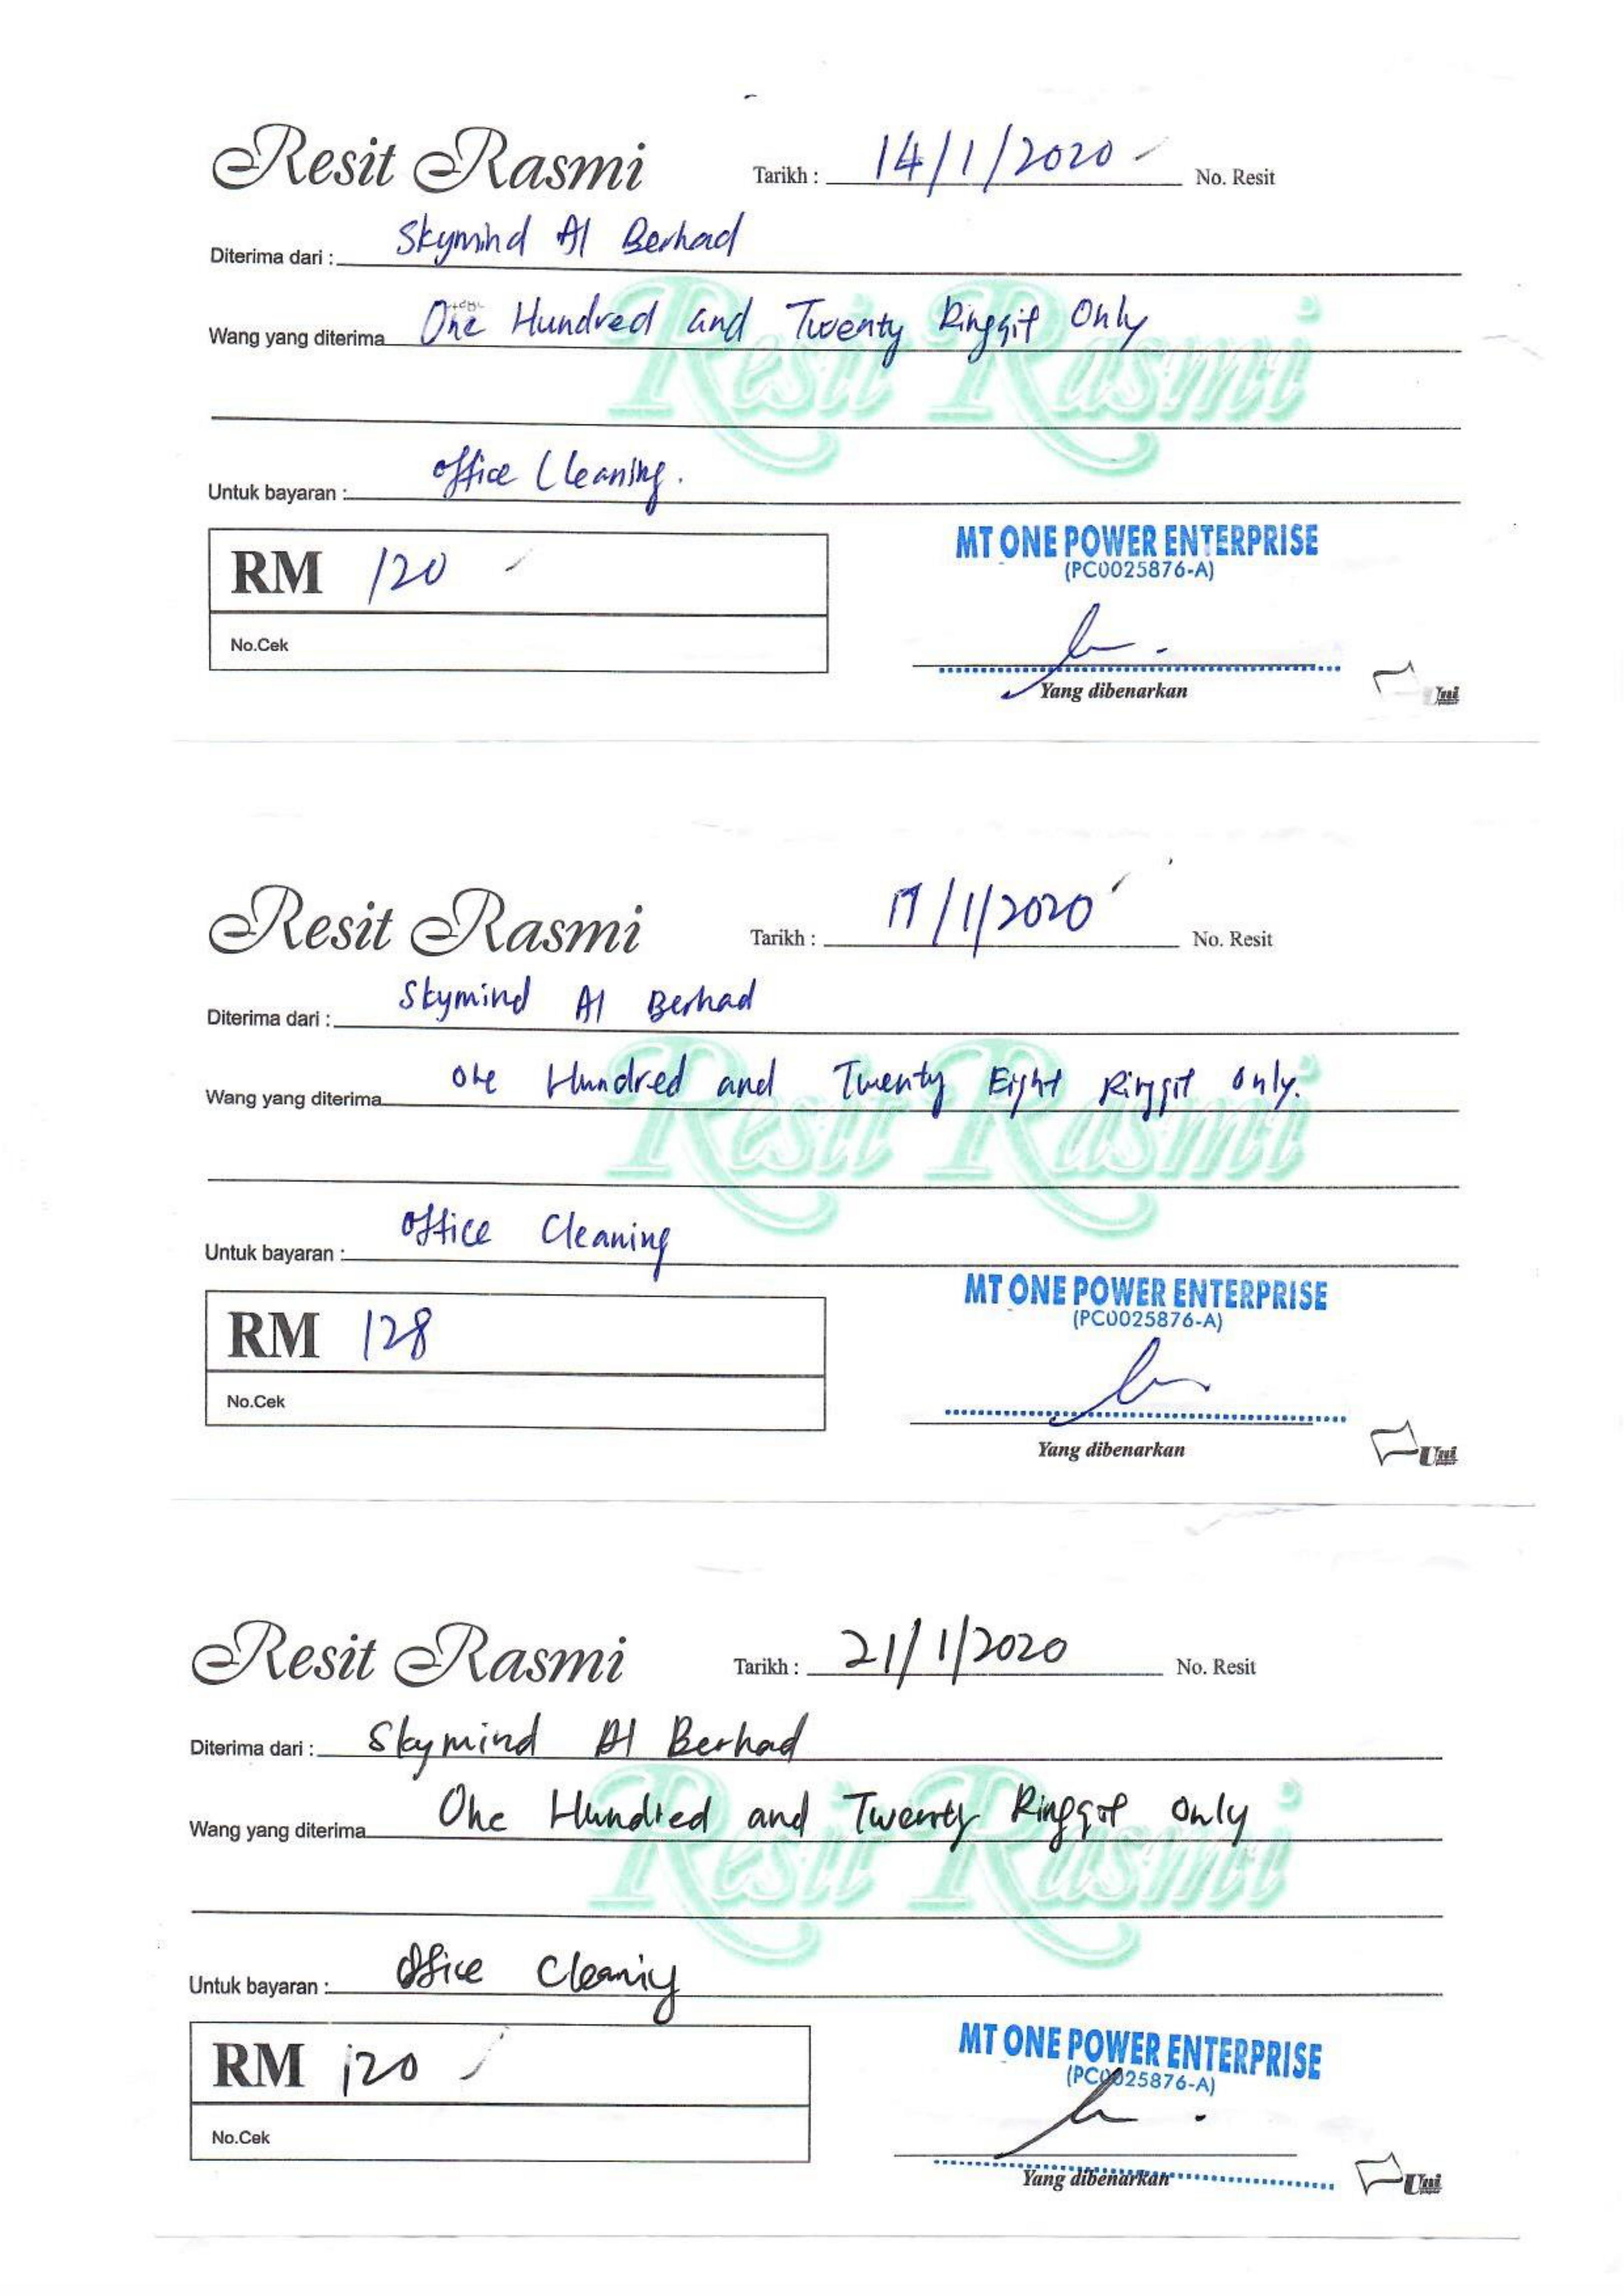 Resit Rasmi Tarikh : 14/1/2020 No. Resit
Diterima dari : Skymind AI Berhad
Wang yang diterima One Hundred and Twenty Ringgit Only
Resit Rasmi
Untuk bayaran : office Cleaning.
MT ONE POWER ENTERPRISE
(PC0025876-A)
RM 120
No.Cek
Yang dibenarkan
Uni
Resit Rasmi Tarikh : 17/1/2020 No. Resit
Diterima dari : Skymind AI Berhad
Wang yang diterima one Hundred and Twenty Eight Ringgit only.
Resit Rasmi
Untuk bayaran : office Cleaning
MT ONE POWER ENTERPRISE
(PC0025876-A)
RM 128
No.Cek
Yang dibenarkan
Uni
Resit Rasmi Tarikh : 21/1/2020 No. Resit
Diterima dari : Skymind AI Berhad
Wang yang diterima One Hundred and Twenty Ringgit only
Resit Rasmi
Untuk bayaran : Office Cleaning
MT ONE POWER ENTERPRISE
(PC0025876-A)
RM 120
No.Cek
Yang dibenarkan
Uni